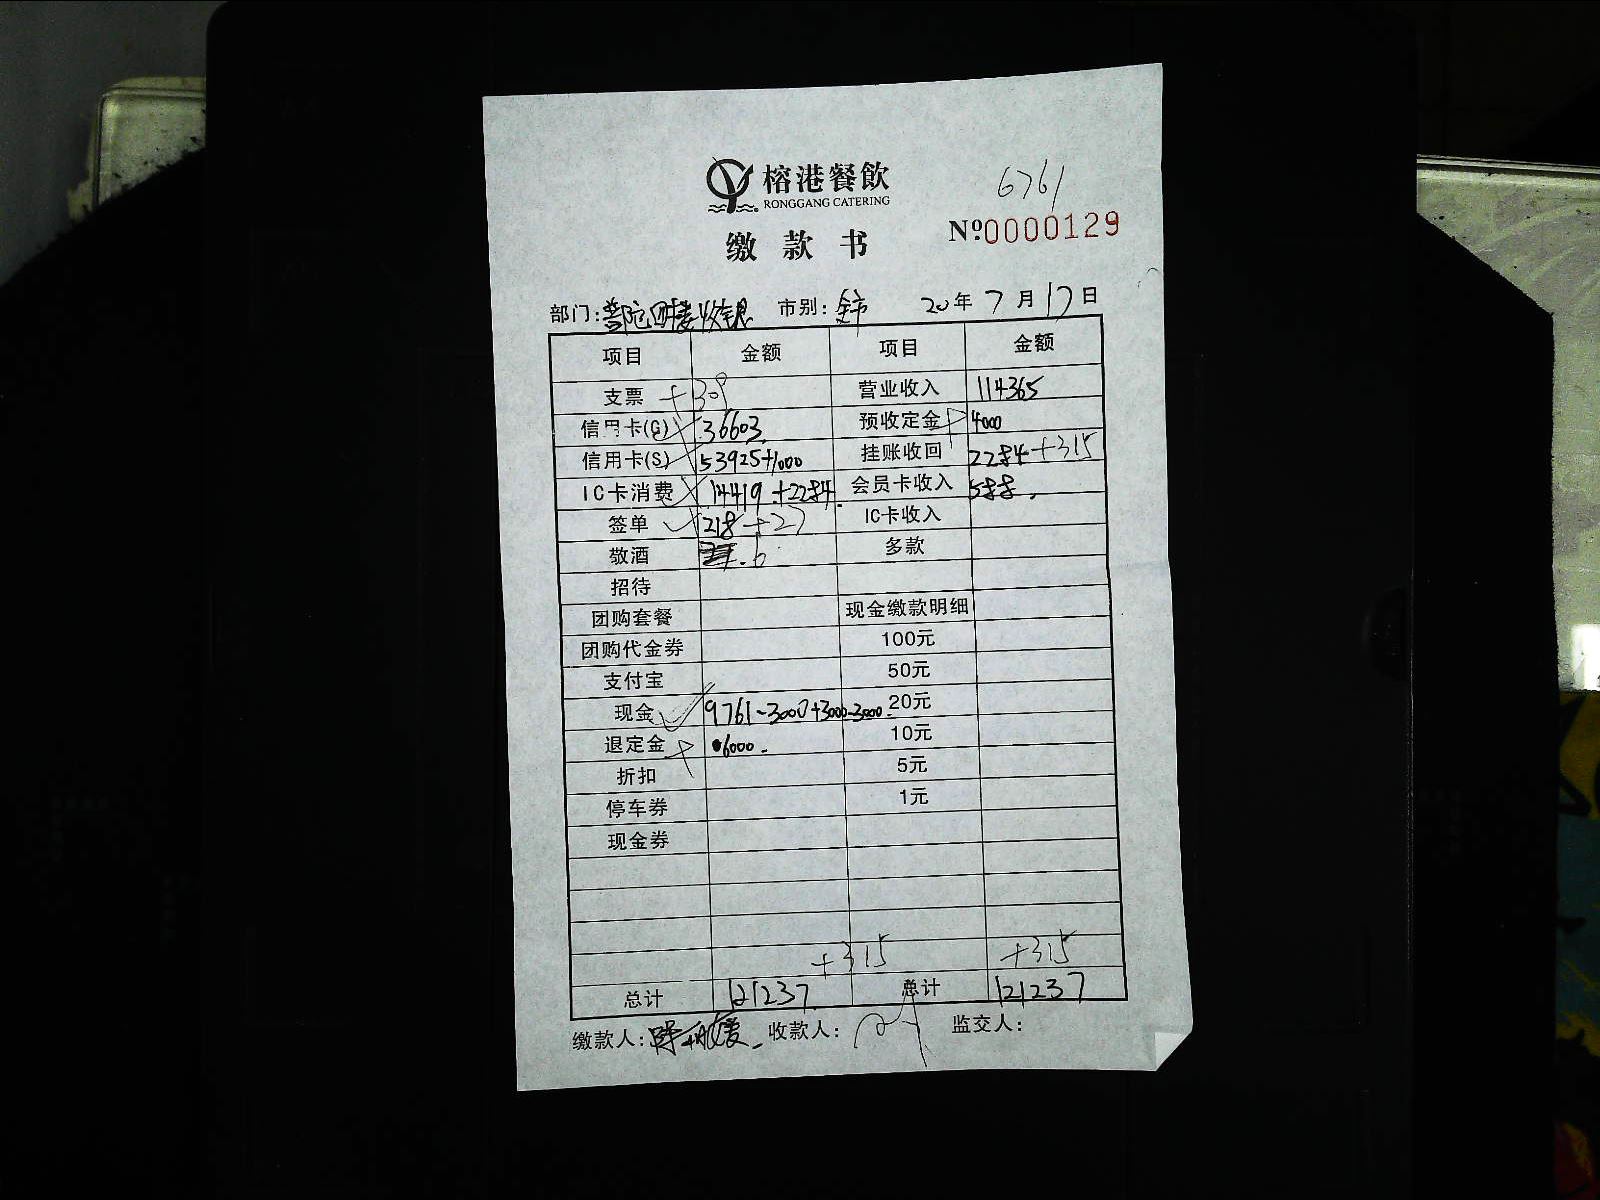 榕港餐飲
RONGGANG CATERING
6761
缴款书
Nº0000129
部门: 普陀四楼收银 市别: 全市 20年 7月 17日
项目 金额 项目 金额
支票 营业收入 114365
信用卡(G) 36603. 预收定金 4000
信用卡(S) 53925+1000 挂账收回 2284+315
IC卡消费 14419.+2284. 会员卡收入 588.
签单 218+27 IC卡收入
敬酒 .6 多款
招待
团购套餐 现金缴款明细
团购代金券 100元
支付宝 50元
现金 9761-3000+3000-3000. 20元
退定金 6000. 10元
折扣 5元
停车券 1元
现金券
+315 +315
总计 121237. 总计 121237
缴款人: 收款人: 监交人: